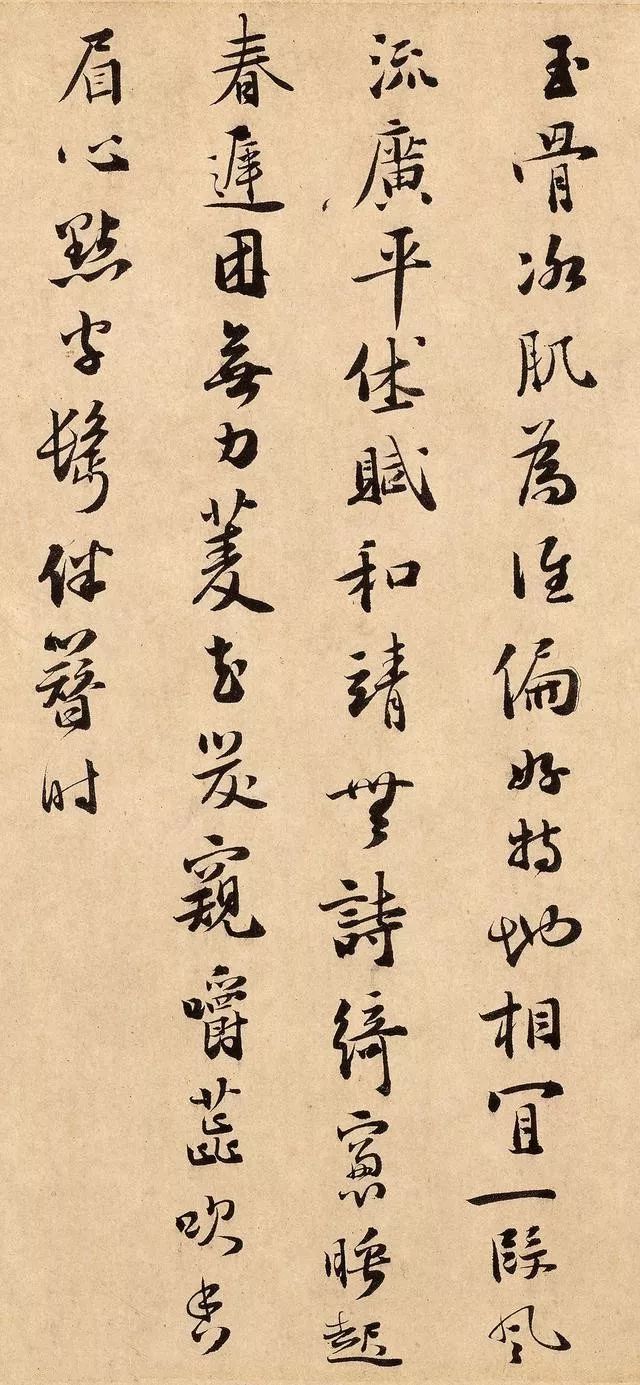 玉骨冰肌為誰偏好特地相宜一段風
流廣平休賦和靖無詩綺窓睡起
春遲困無力菱花笑窺嚼蕊吹香
眉心點處鬢畔簪時